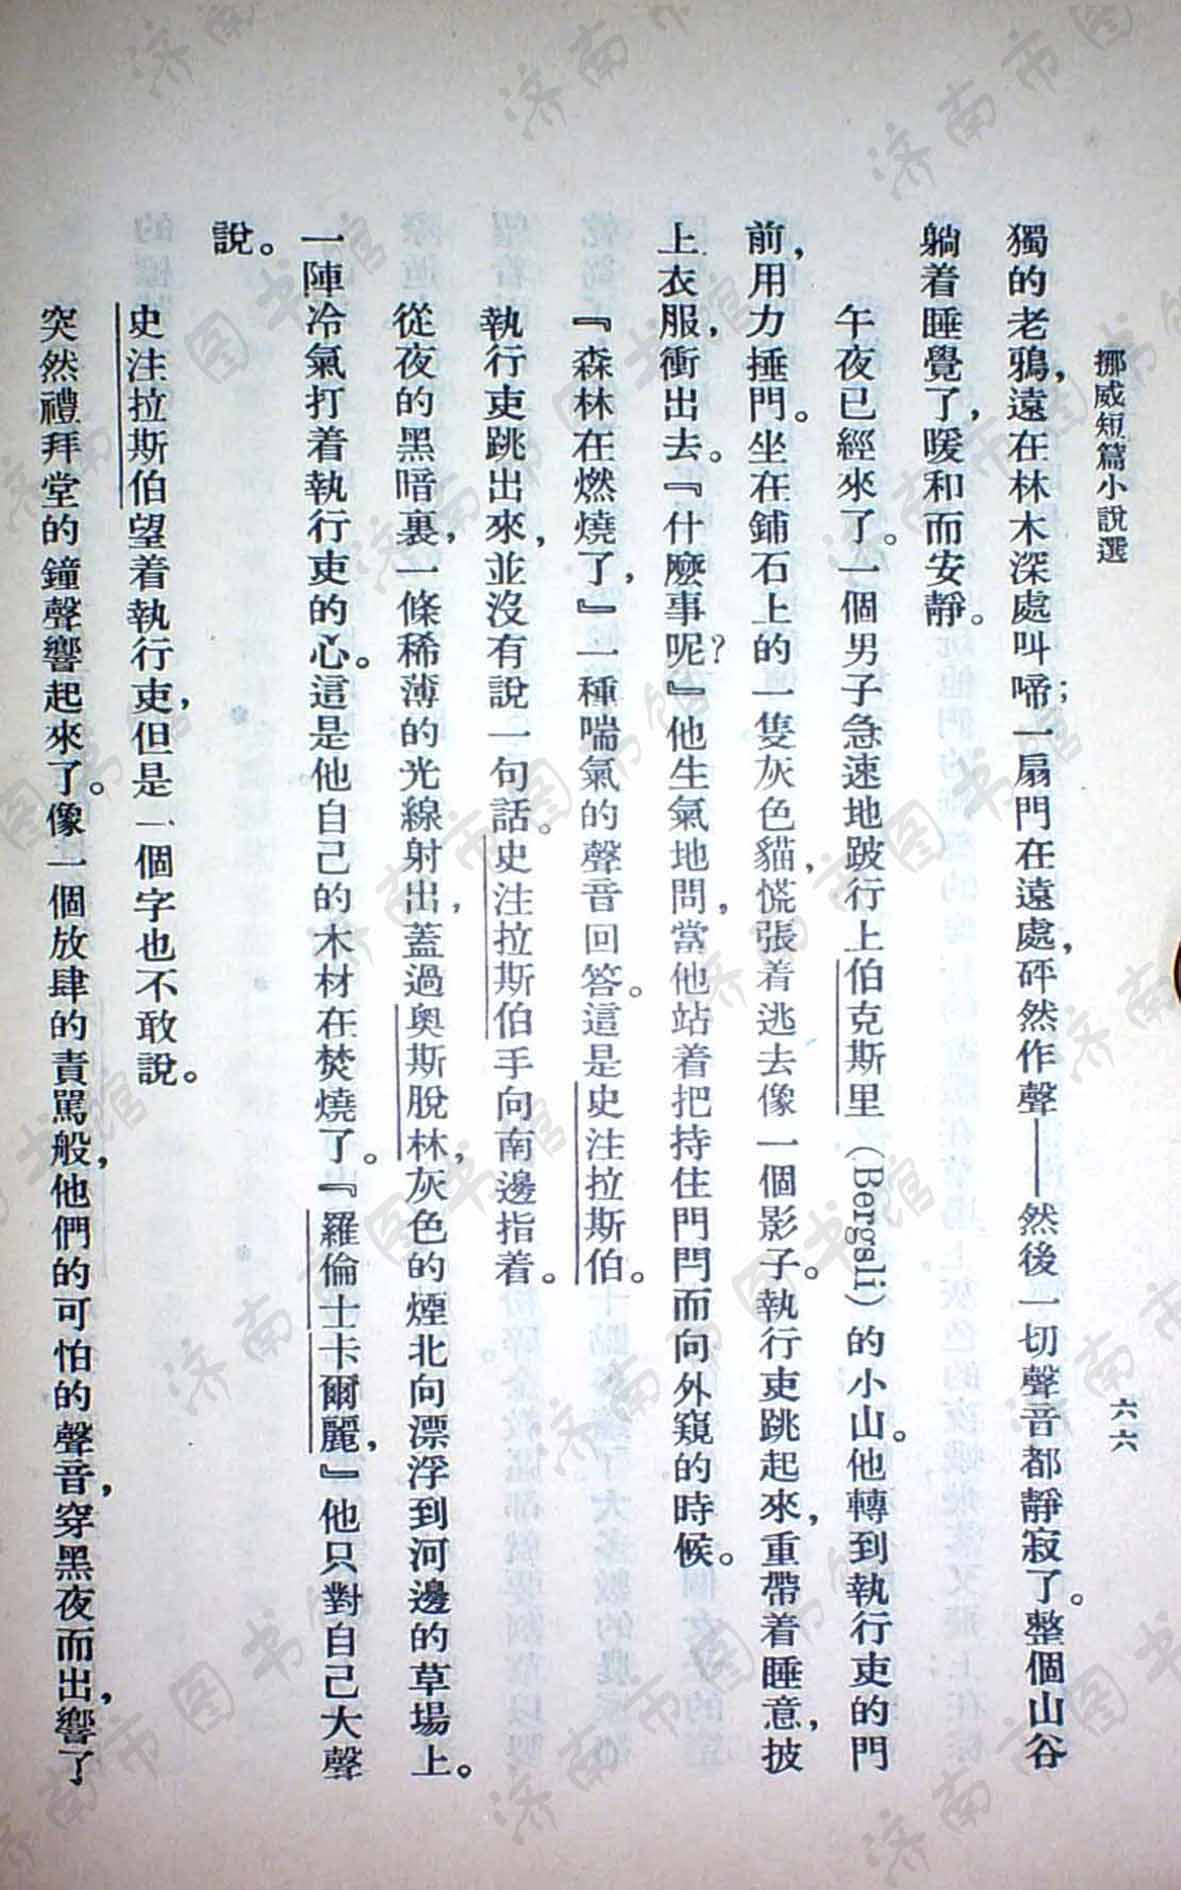 挪威短篇小說選
六六
獨的老鴉，遠在林木深處叫啼；一扇門在遠處，砰然作聲——然後一切聲音都靜寂了。整個山谷
躺着睡覺了，暖和而安靜。
午夜已經來了。一個男子急速地跛行上伯克斯里（Bergsli）的小山。他轉到執行吏的門
前，用力捶門。坐在鋪石上的一隻灰色貓，慌張着逃去像一個影子。執行吏跳起來，重帶着睡意，披
上衣服，衝出去。『什麼事呢？』他生氣地問，當他站着把持住門閂而向外窺的時候。
『森林在燃燒了，』一種喘氣的聲音回答。這是史注拉斯伯。
執行吏跳出來，並沒有說一句話。史注拉斯伯手向南邊指着。
從夜的黑暗裏，一條稀薄的光線射出，蓋過奧斯脫林，灰色的煙北向漂浮到河邊的草場上。
一陣冷氣打着執行吏的心。這是他自己的木材在焚燒了。『羅倫士卡爾麗，』他只對自己大聲
說。
史注拉斯伯望着執行吏，但是一個字也不敢說。
突然禮拜堂的鐘聲響起來了。像一個放肆的責駡般，他們的可怕的聲音，穿黑夜而出，響了
济南市图书馆